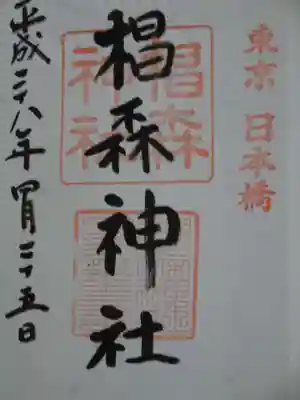 東京 日本橋
椙森神社
椙森
神社
平成二十八年四月二十五日